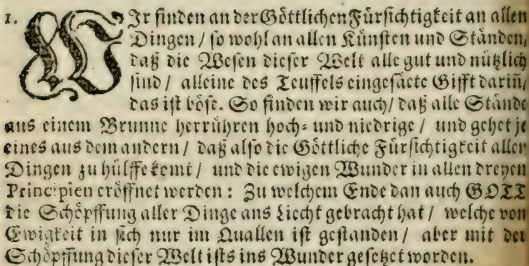 1. WJr finden an der Göttlichen Fürsichtigkeit an allen
Dingen / so wohl an allen Künsten und Ständen,
daß die Wesen dieser Welt alle gut und nützlich
sind / alleine des Teuffels eingesäete Gifft darin,
das ist böse. So finden wir auch / daß alle Stände
aus einem Brunne herrühren hoch- und niedrige / und gehet je
eines aus dem andern / daß also die Göttliche Fürsichtigkeit allen
Dingen zu hülffe komt / und die ewigen Wunder in allen dreyen
Principien eröffnet werden: Zu welchem Ende dan auch GOTT
die Schöpffung aller Dinge ans Liecht gebracht hat / welche von
Ewigkeit in sich nur im Quallen ist gestanden / aber mit der
Schöpffung dieser Welt ists ins Wunder gesetzet worden.